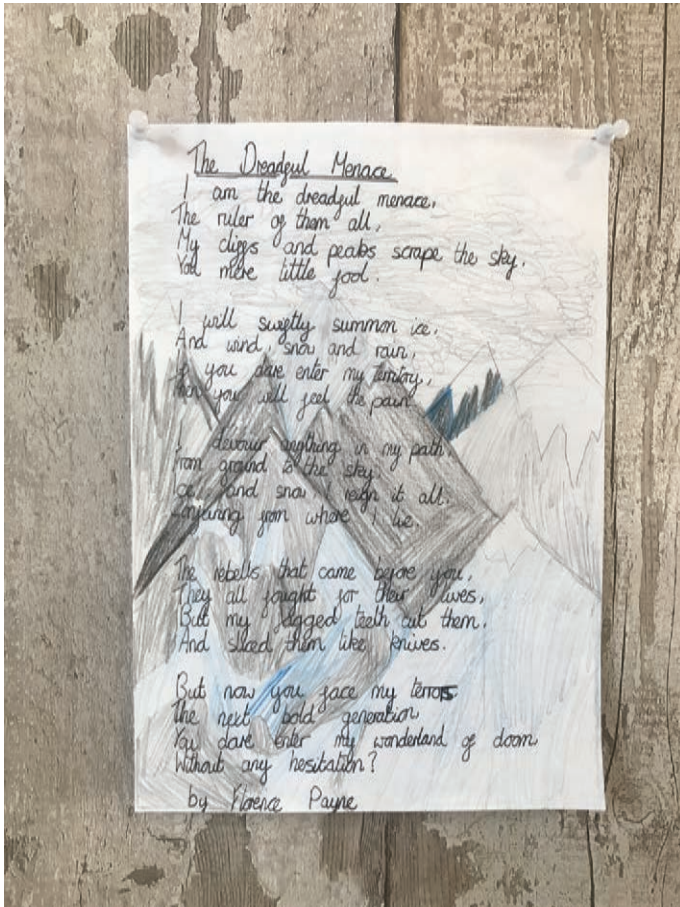 The Dreadful Menace
I am the dreadful menace,
The ruler of them all,
My cliffs and peaks scrape the sky,
You mere little fool.
I will swiftly summon ice,
And wind, snow and rain,
If you dare enter my territory,
Then you will feel the pain
I devour anything in my path
From ground to the sky
Ice and snow I reign it all.
Conjuring from where I lie.
The rebells that came before you,
They all fought for their lives,
But my jagged teeth cut them.
And sliced them like knives.
But now you face my terrors
The next bold generation
You dare enter my wonderland of doom
Without any hesitation?
by Florence Payne